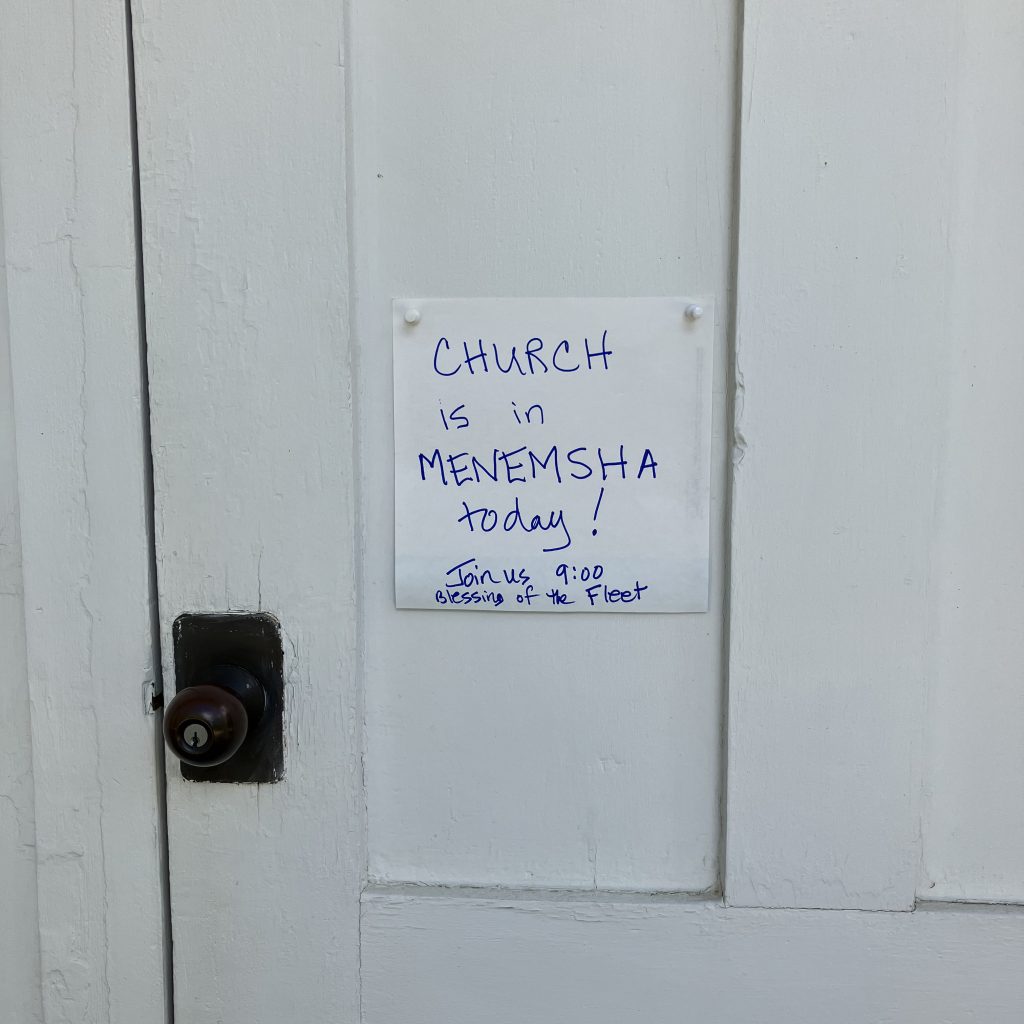 CHURCH
is in
MENEMSHA
today!
Join us 9:00
Blessing of the Fleet